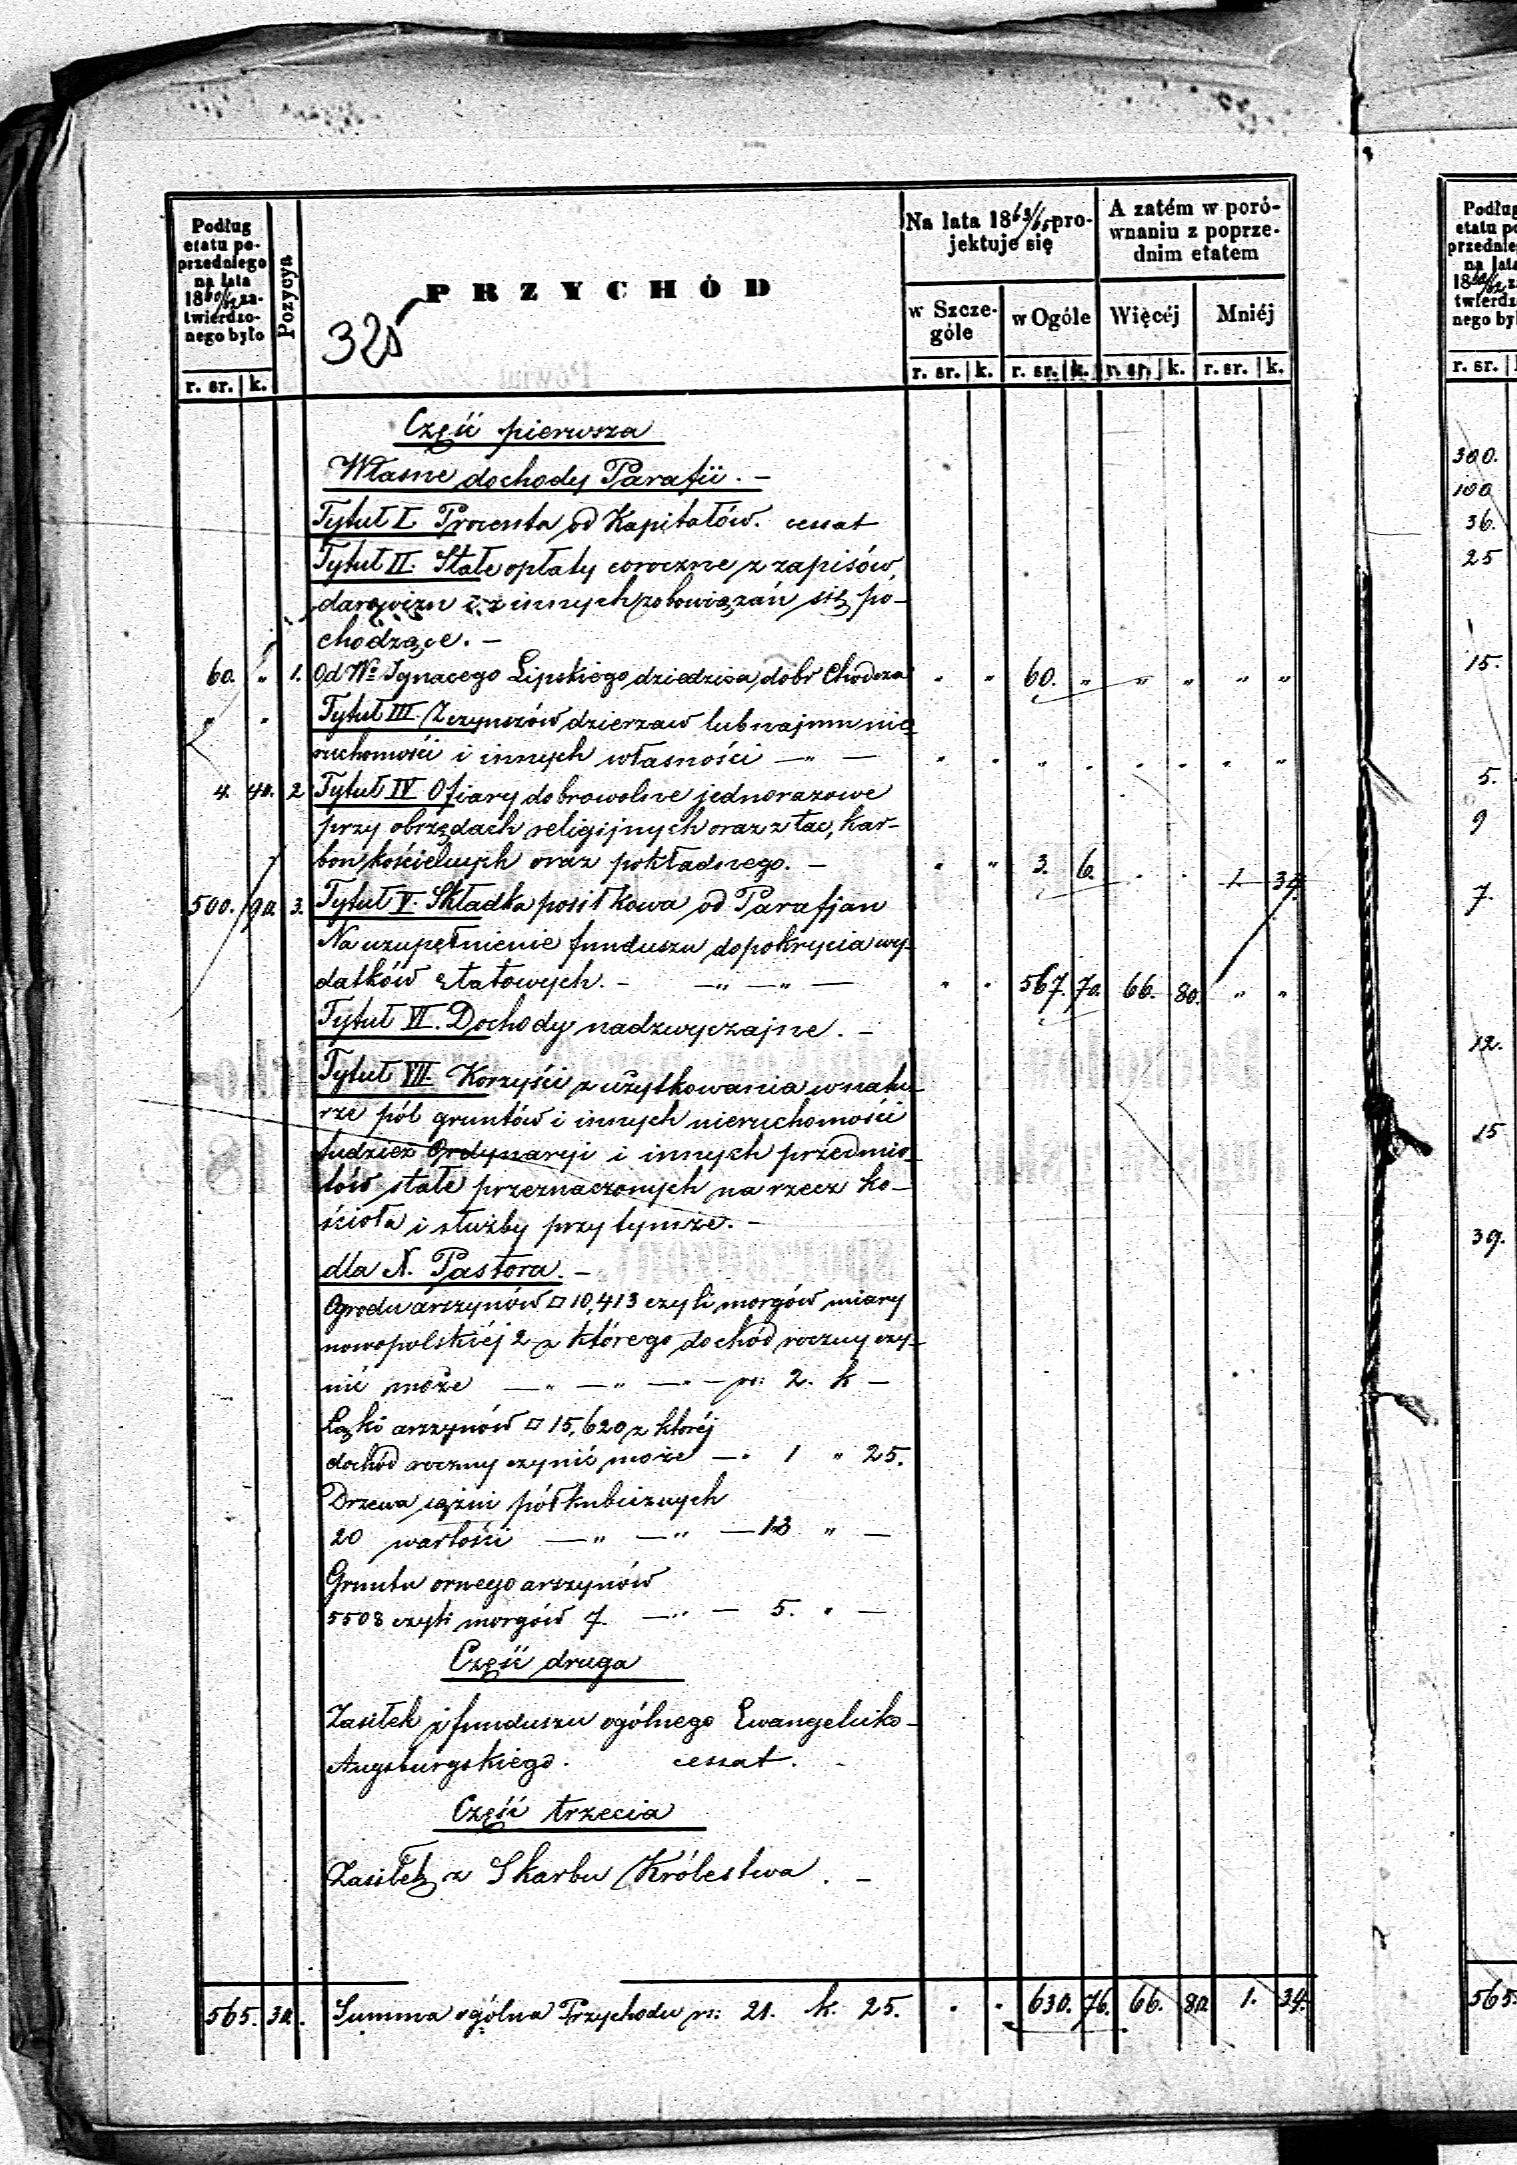 Podług etatu poprzedniego na lata 18 60/62 zatwierdzonego było
Pozycya
PRZYCHÓD
325
Na lata 18 63/65 projektuje się
A zatém w porównaniu z poprzednim etatem
w Szczególe
w Ogóle
Więcéj
Mniéj
r. sr. k. r. sr. k. r. sr. k. r. sr. k. r. sr. k.
Część pierwsza
Własne dochody Parafii. –
Tytuł I Procenta od Kapitałów. cessat
Tytuł II. Stałe opłaty coroczne z zapisów,
darowizn i z innych zobowiązań się po-
chodzące. –
60. " 1. Od Wo Ignacego Lipskiego dziedzica dobr Chodcza " " 60. " " " " "
" " Tytuł III Z czynszów dzierzaw lub najmu nie-
ruchomości i innych własności — " — " " " " " " " "
4. 40. 2 Tytuł IV Ofiary dobrowolne jednorazowe
przy obrzędach religijnych oraz z tac, kar-
bon kościelnych oraz pokładnego. – " " 3. 6. . . 1. 34.
500. 90. 3. Tytuł V. Składka posiłkowa od Parafjan
Na uzupełnienie funduszu do pokrycia wy-
datków etatowych. – — " — " — " " 567. 70. 66. 80. " "
Tytuł VI. Dochody nadzwyczajne. –
Tytuł VII Korzyści z użytkowania w natu-
rze pól gruntów i innych nieruchomości
tudzież Ordynaryi i innych przedmio-
tów stałe przeznaczonych na rzecz ko-
ścioła i służby przy tymze. –
dla X. Pastora. –
Ogrodu arszynów □ 10,413 czyli morgów miary
nowopolskiéj 2 z którego dochód roczny czy-
nić może — " — " — " — rs: 2. k —
Łąki arszynów □ 15,620 z któréj
dochód roczny czynić może — " 1 " 25.
Drzewa sążni półkubicznych
20 wartości — " — " — 13 " —
Gruntu ornego arszynów
5508 czyli morgów 7. — " — 5. " —
Część druga
Zasiłek z funduszu ogólnego Ewangelicko-
Augsburgskiego. cessat. –
Część trzecia
Zasiłek z Skarbu Królestwa. –
565. 30. Summa ogólna Przychodu rs: 21. k. 25. " " 630. 76. 66. 80. 1. 34.
Podług
r. sr.
300.
100
36.
25
15.
5.
9
7.
12.
15
39.
565.